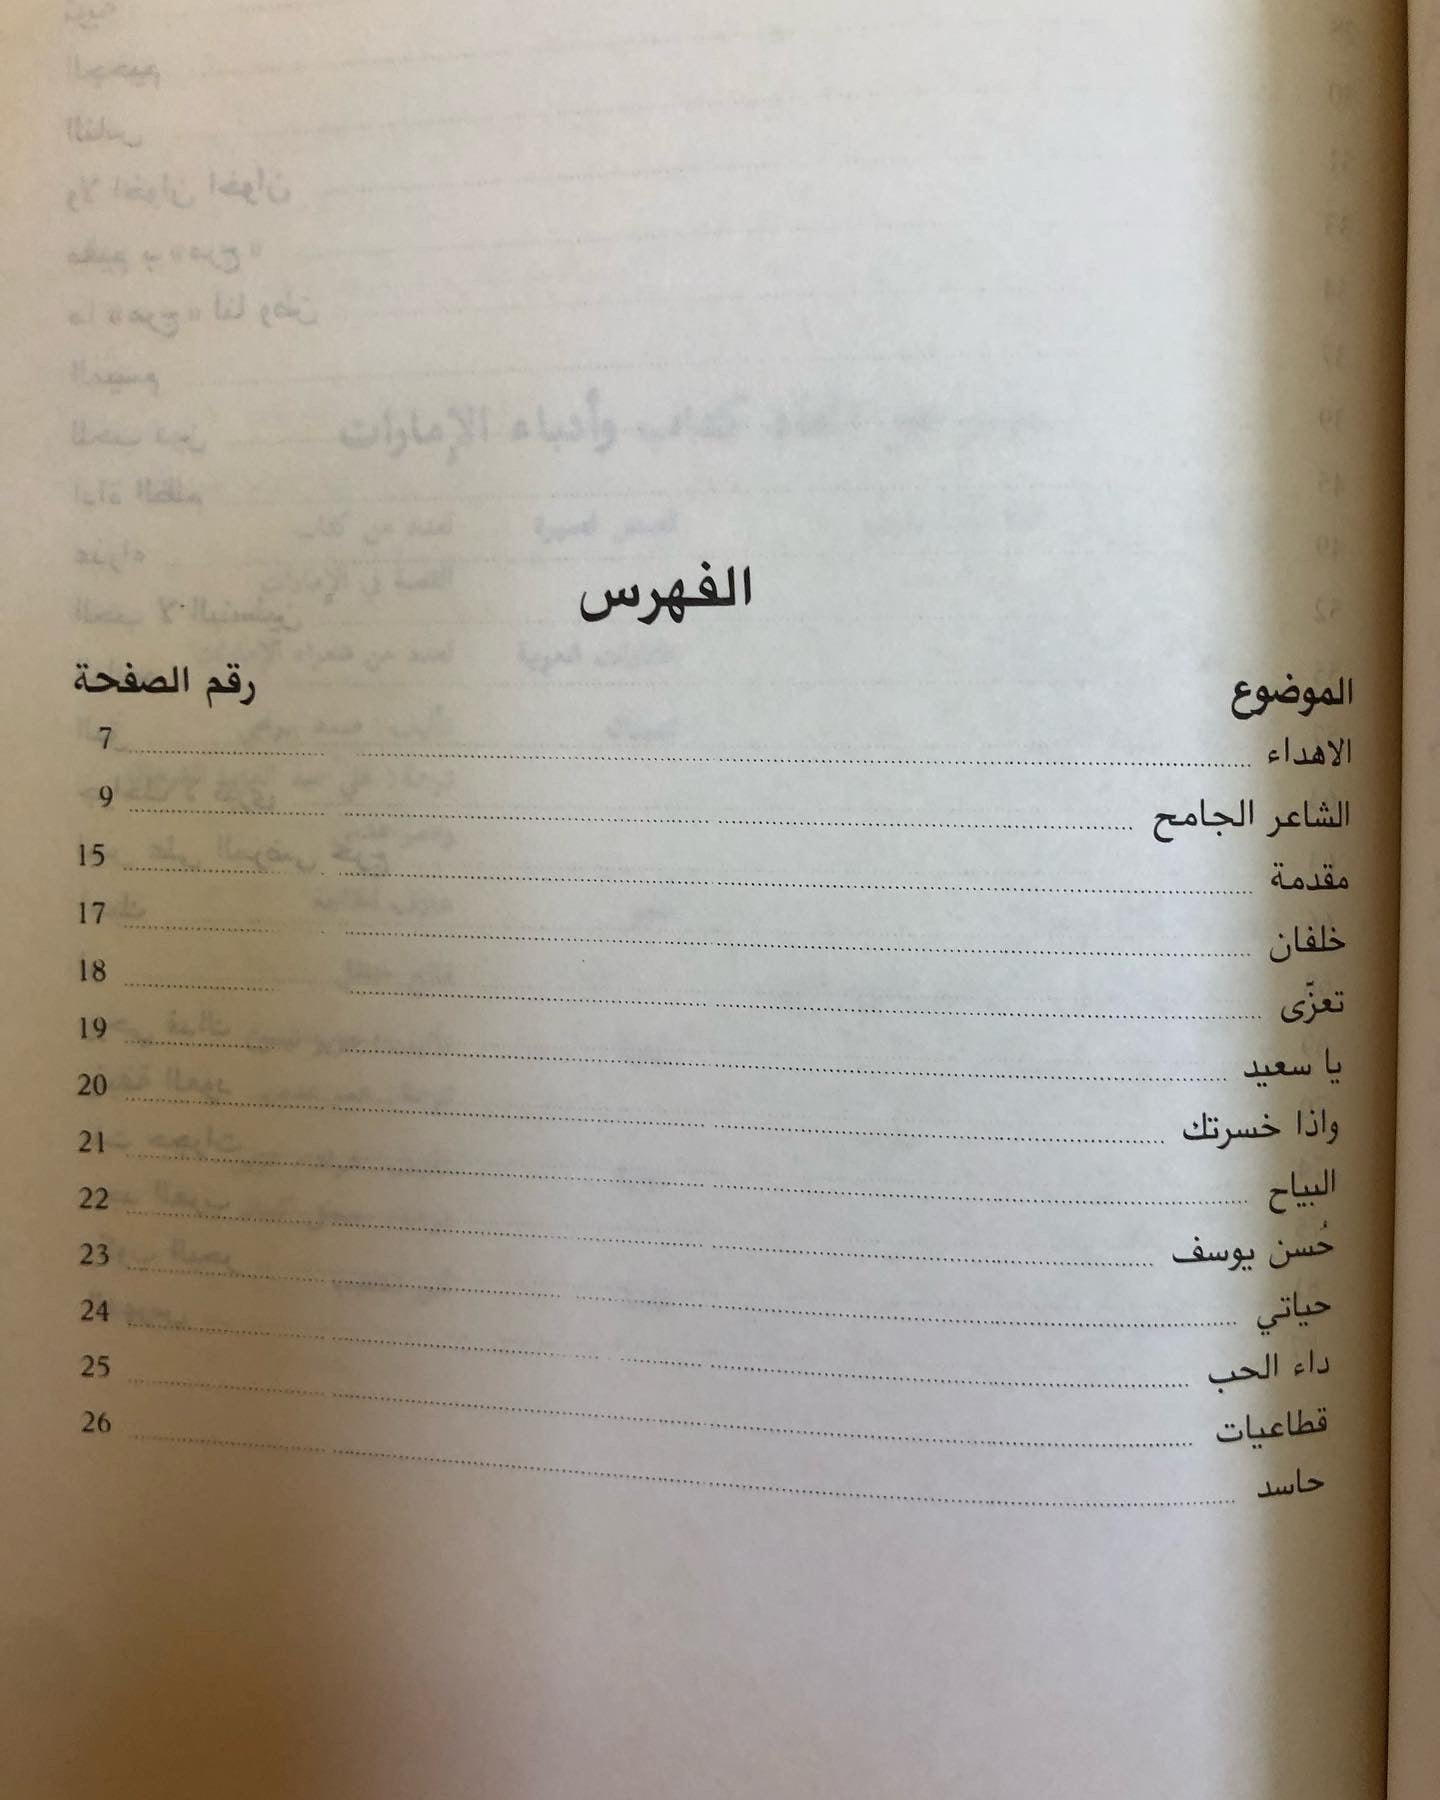 الفهرس
الموضوع رقم الصفحة
الاهداء 7
الشاعر الجامح 9
مقدمة 15
خلفان 17
تعزّى 18
يا سعيد 19
واذا خسرتك 20
البياح 21
حُسن يوسف 22
حياتي 23
داء الحب 24
قطاعيات 25
حاسد 26